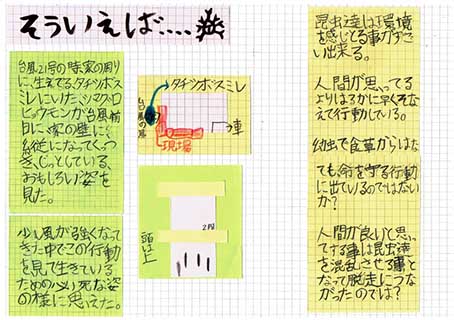 そういえば....
台風21号の時、家の周り
に、生えてる、タチツボス
ミレにいた、ツマグロ
ヒョウモンが台風前
日に、家の壁に、
縦になってくっつ
き、じっとしている、
おもしろい姿を
見た。
少し風が強くなって
きた中でこの行動
を見て生きている
ための必死な姿
の様に思えた。
タチツボスミレ
車
現場
2階
頭は上
昆虫達は環境
を感じとる事がすご
い出来る。
人間が思ってる
よりはるかに早くそなえ
て行動している。
幼虫で食草からはなれ
ても、命を守る行動
に出ているのではない
か?
人間が良いと思っ
てする事は昆虫達
を混乱させる事と
なって脱走につな
がったのでは?